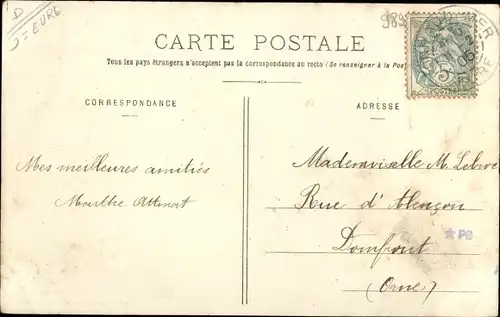 D
D = EURE
989
CARTE POSTALE
Tous les pays étrangers n'acceptent pas la correspondance au recto (Se renseigner à la Post
CORRESPONDANCE
ADRESSE
5
Mes meilleures amitiés
Marthe
Mademoiselle M.
Rue d'Alençon
Domfront
(Orne)